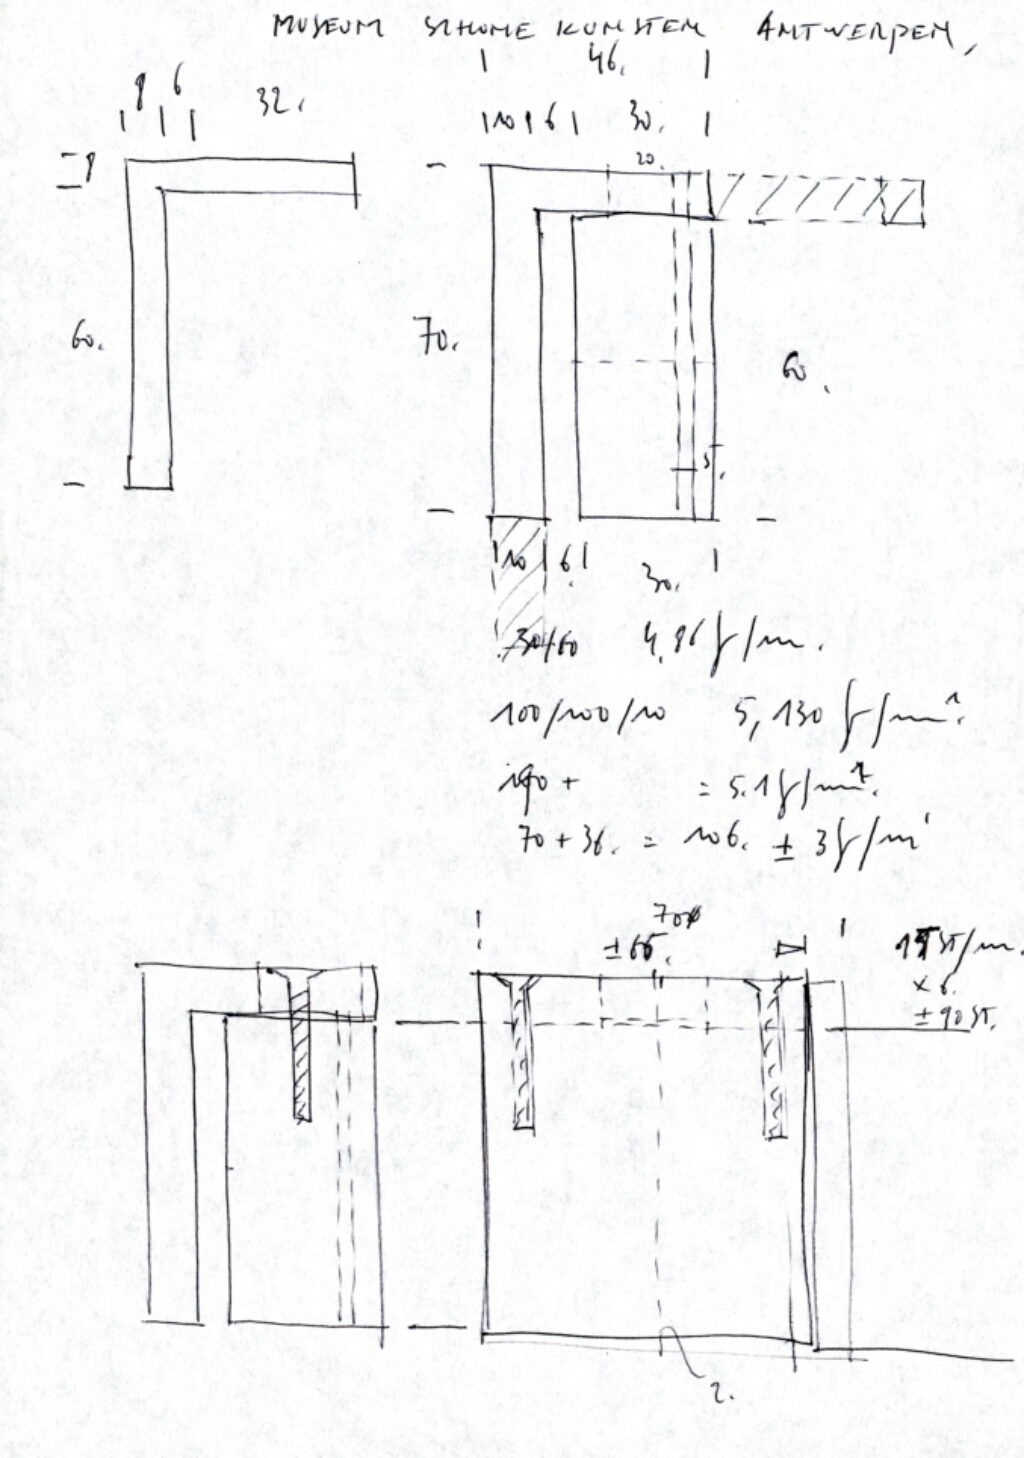 MUSEUM SCHONE KUNSTEN ANTWERPEN,
46.
8 6 32.
10 6 30.
8
20.
60.
70.
60.
5.
10 6
30.
30/60 4,86 f/m.
100/100/10 5,130 f/m².
= 5.1 f/m².
70 + 36. = 106. ± 3 f/m'
70
± 65.
ST/m.
× 6.
± 90 ST.
2.